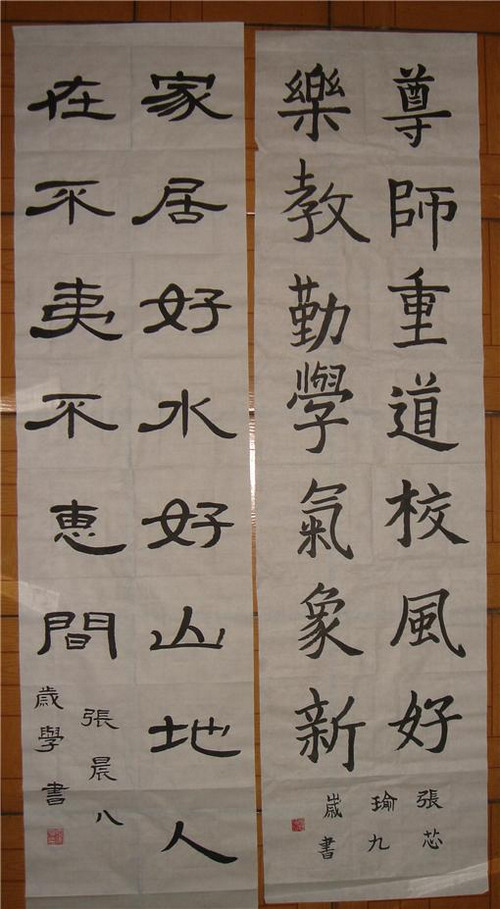 尊師重道校風好
樂教勤學氣象新
張芯
瑜九
歲書
家居好水好山地人
在不夷不惠間
張晨八
歲學書